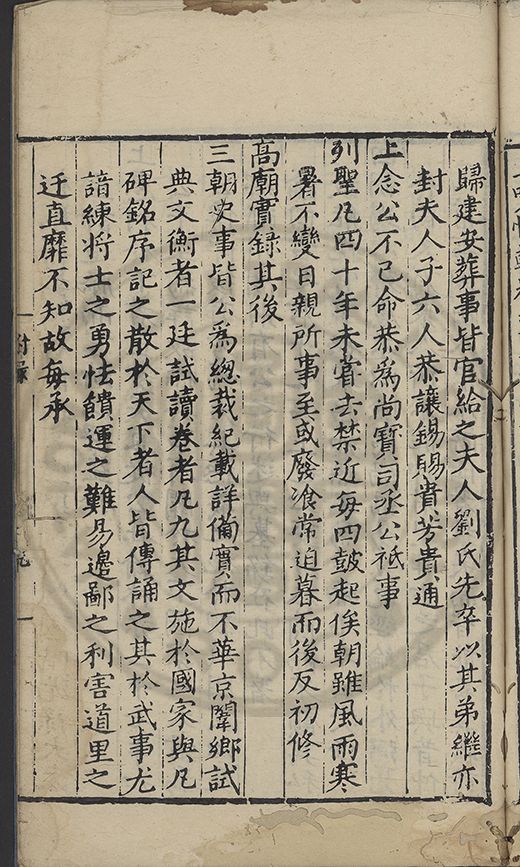 歸建安葬事皆官給之夫人劉氏先卒以其弟繼亦
封夫人子六人恭讓錫賜貴芳貴通
上念公不已命恭爲尚寶司丞公祗事
列聖凡四十年未嘗去禁近每四鼓起俟朝雖風雨寒
暑不變日親所事至或廢飡常迫暮而後反初修
高廟實録其後
三朝史事皆公爲總裁紀載詳備實而不華京闈鄉試
典文衡者一廷試讀卷者凡九其文施於國家與凡
碑銘序記之散於天下者人皆傳誦之其於武事尤
諳練将士之勇怯饋運之難易邊鄙之利害道里之
迂直靡不知故每承
附録
九